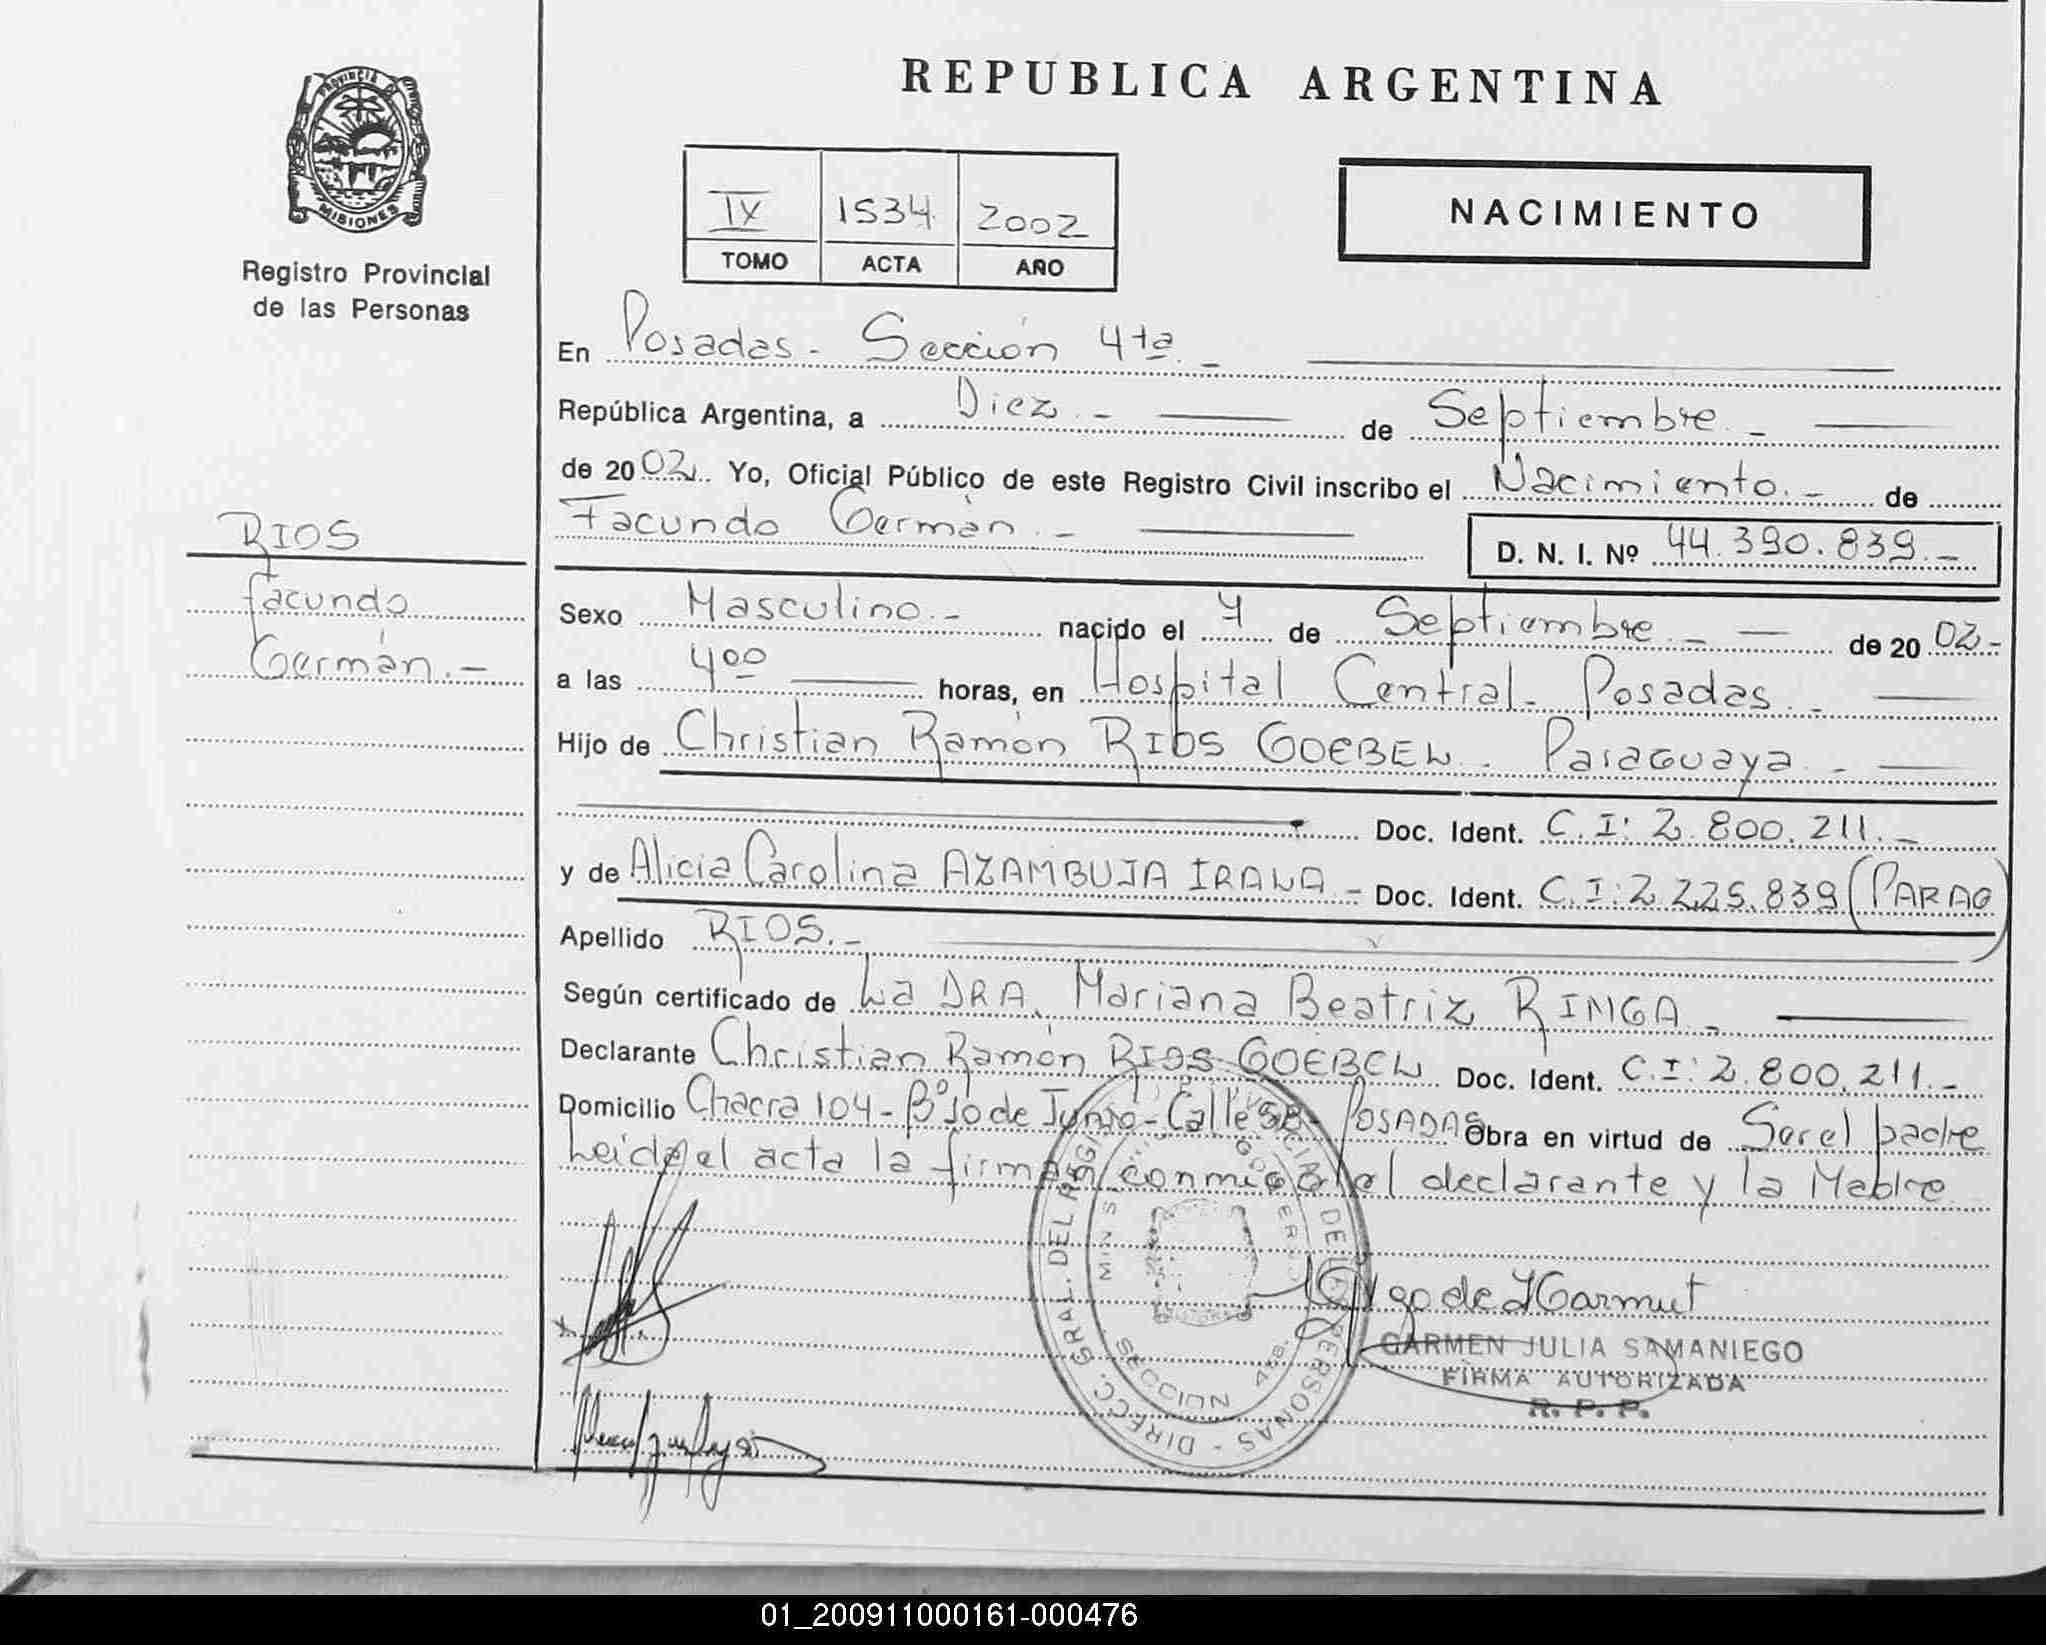 REPUBLICA ARGENTINA
PROVINCIA DE
MISIONES
Registro Provincial
de las Personas
IX 1534 2002
TOMO ACTA AÑO
NACIMIENTO
En Posadas - Sección 4ta. -
República Argentina, a Diez. - de Septiembre. -
de 2002. Yo, Oficial Público de este Registro Civil inscribo el Nacimiento. - de
Facundo Germán. - D. N. I. Nº 44.390.839. -
RIOS
Facundo
Germán. -
Sexo Masculino. - nacido el 4 de Septiembre. - de 2002-
a las 4 00 horas, en Hospital Central - Posadas. -
Hijo de Christian Ramón RIOS GOEBEL - Paraguaya. -
Doc. Ident. C.I: 2.800.211. -
y de Alicia Carolina AZAMBUJA IRALA - Doc. Ident. C.I: 2.225.839 (PARAG
Apellido RIOS. -
Según certificado de La DRA. Mariana Beatriz RINGA -
Declarante Christian Ramón RIOS GOEBEL Doc. Ident. C.I: 2.800.211. -
Domicilio Chacra 104 - Bº 10 de Junio - Calle - POSADAS Obra en virtud de Ser el padre
Leida el acta la firman conmigo el declarante y la Madre
DIRECC. GRAL. DEL REGISTRO PERSONAS
SECCION 4ta.
CARMEN JULIA SAMANIEGO
FIRMA AUTORIZADA
R. P. P.
01_200911000161-000476